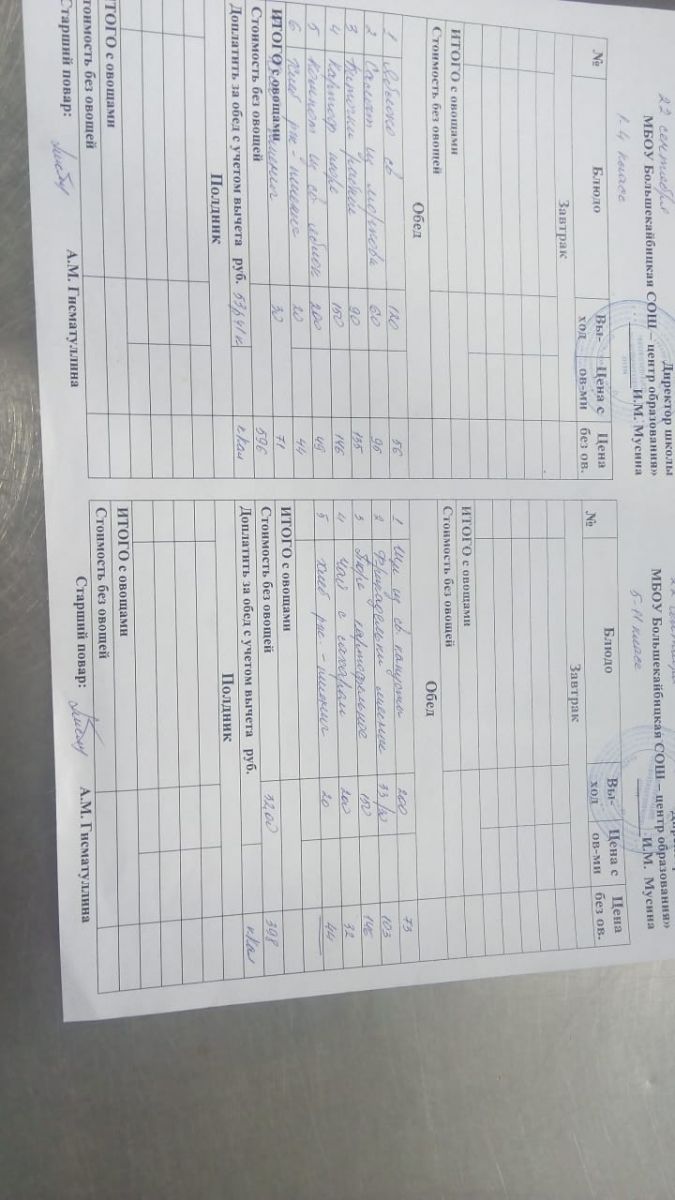 22 сентября
Директор школы
МБОУ Большекайбицкая СОШ – центр образования»
И.М. Мусина
1-4 класс
№ Блюдо Вы-ход Цена с ов-ми Цена без ов.
Завтрак
ИТОГО с овощами
Стоимость без овощей
Обед
1 Яблоко св 120 56
2 Салат из моркови 60 95
3 90 135
4 Картоф пюре 150 146
5 Компот из св яблок 200 49
6 Хлеб рж-пшенич 20 44
ИТОГО с овощами 30 71
Стоимость без овощей 596
Доплатить за обед с учетом вычета руб. 53р41к ккал
Полдник
ИТОГО с овощами
Стоимость без овощей
Старший повар: А.М. Гисматуллина
22 сентября
МБОУ Большекайбицкая СОШ – центр образования»
И.М. Мусина
5-11 класс
№ Блюдо Вы-ход Цена с ов-ми Цена без ов.
Завтрак
ИТОГО с овощами
Стоимость без овощей
Обед
1 Щи из св капусты 200 73
2 Фрикадельки мясные 103
3 Пюре картофельное 150 146
4 Чай с сахаром 200 32
5 Хлеб рж-пшенич 20 44
ИТОГО с овощами
Стоимость без овощей 32,00 398
Доплатить за обед с учетом вычета руб. ккал
Полдник
ИТОГО с овощами
Стоимость без овощей
Старший повар: А.М. Гисматуллина